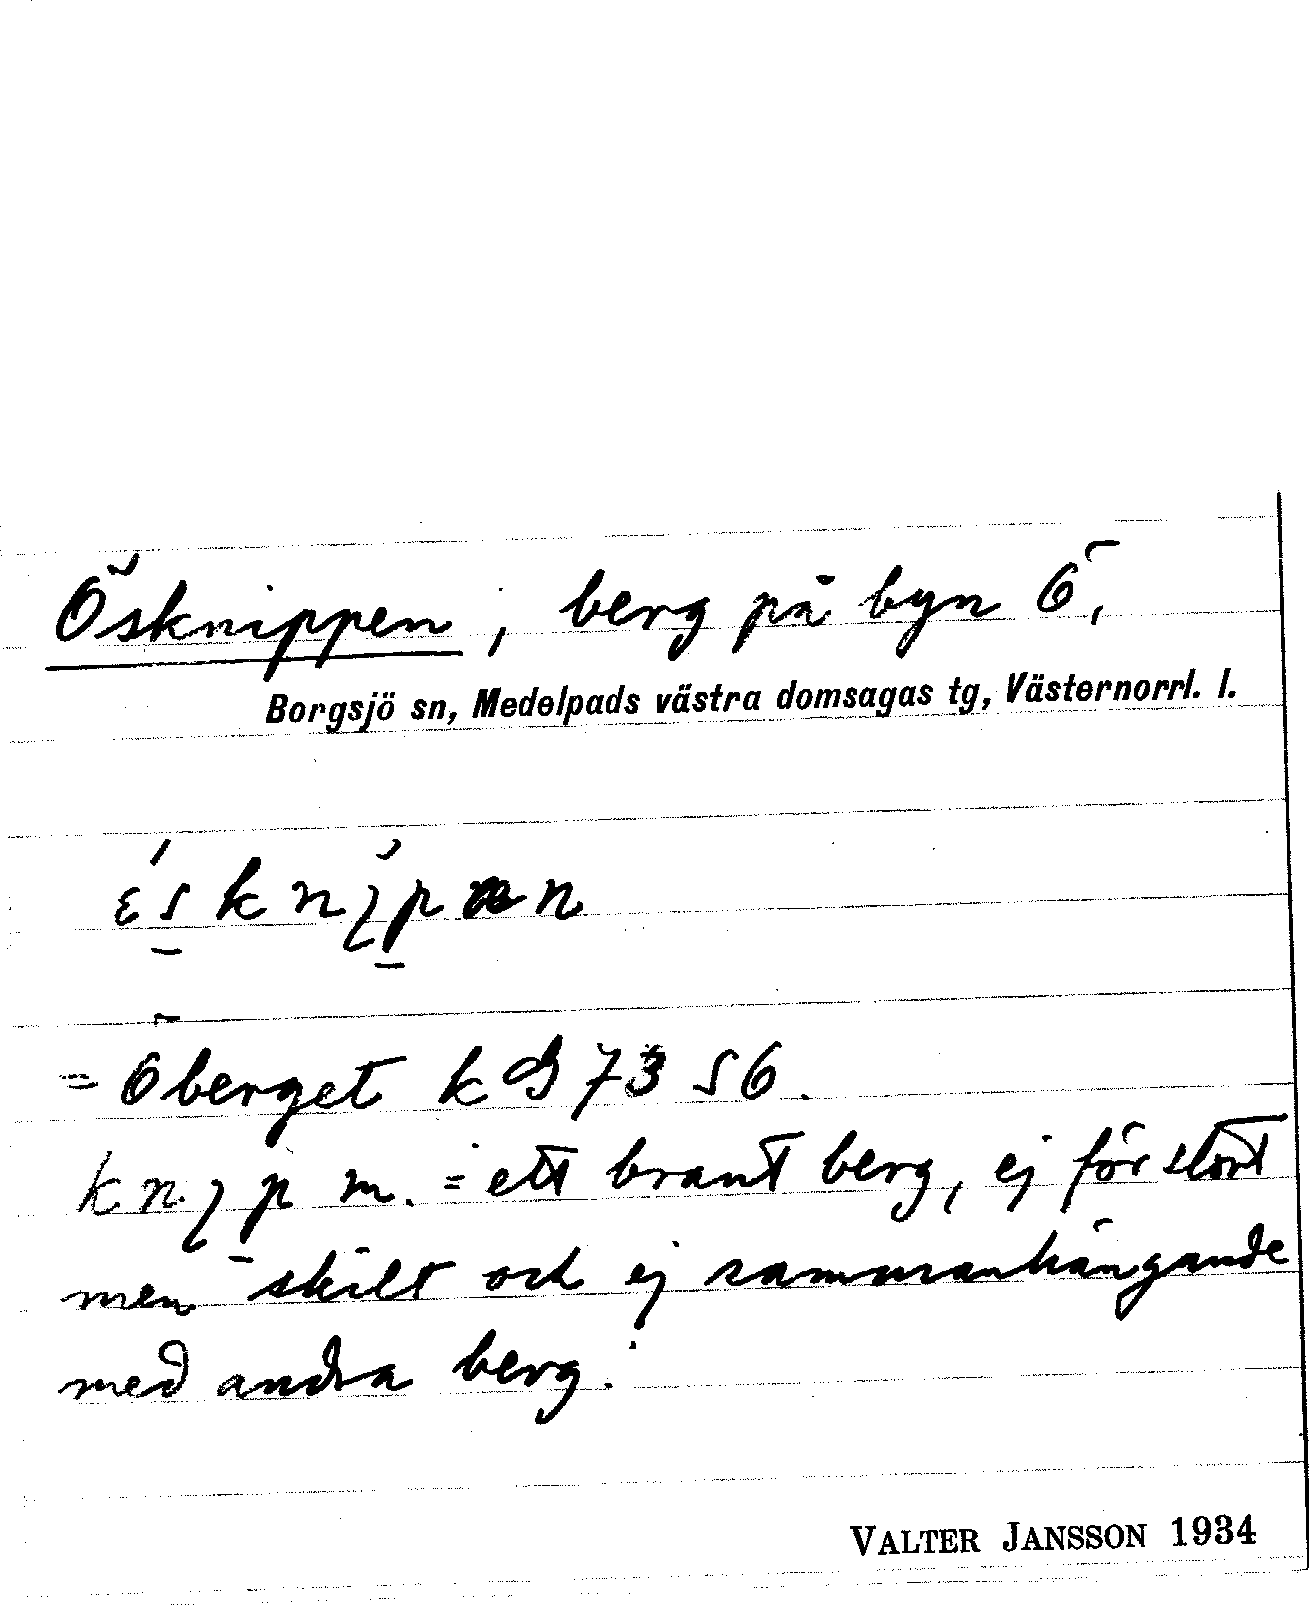 Ösknippen, berg på byn Ö,
Borgsjö sn, Medelpads västra domsagas tg, Västernorrl. l.
= Öberget k G 73 S6.
m. = ett brant berg, ej för stort
men skilt och ej sammanhängande
med andra berg.
VALTER JANSSON 1934